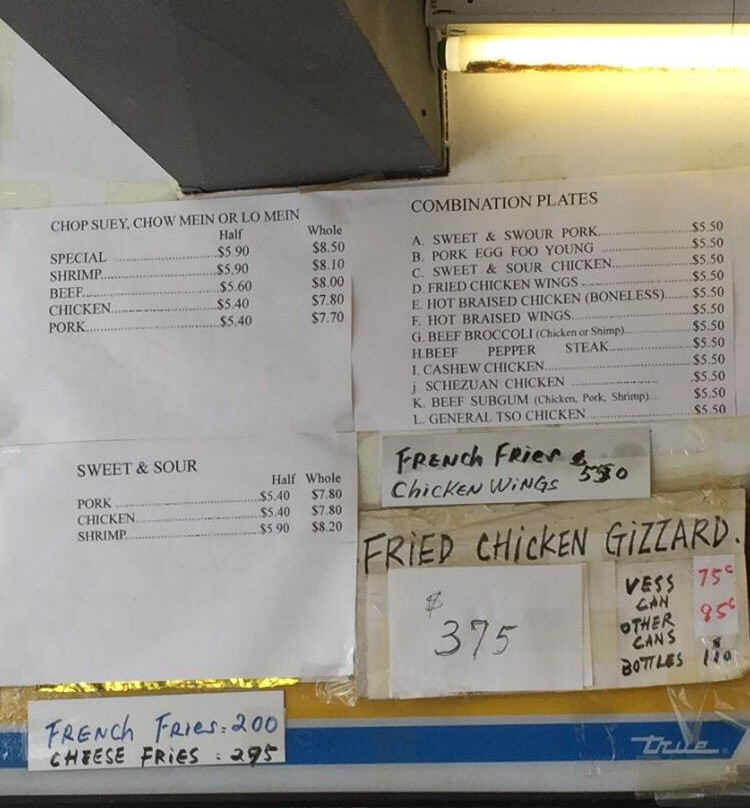 CHOP SUEY, CHOW MEIN OR LO MEIN
Half Whole
SPECIAL ........ $5.90 $8.50
SHRIMP........ $5.90 $8.10
BEEF........ $5.60 $8.00
CHICKEN........ $5.40 $7.80
PORK........ $5.40 $7.70
COMBINATION PLATES
A. SWEET & SWOUR PORK........ $5.50
B. PORK EGG FOO YOUNG ........ $5.50
C. SWEET & SOUR CHICKEN........ $5.50
D. FRIED CHICKEN WINGS ........ $5.50
E. HOT BRAISED CHICKEN (BONELESS)........ $5.50
F. HOT BRAISED WINGS........ $5.50
G. BEEF BROCCOLI (Chicken or Shimp)........ $5.50
H.BEEF PEPPER STEAK........ $5.50
I. CASHEW CHICKEN........ $5.50
j SCHEZUAN CHICKEN ........ $5.50
K. BEEF SUBGUM (Chicken, Pork, Shrimp)........ $5.50
L. GENERAL TSO CHICKEN........ $5.50
SWEET & SOUR
Half Whole
PORK ........ $5.40 $7.80
CHICKEN........ $5.40 $7.80
SHRIMP........ $5.90 $8.20
FRENCH FRIES &
CHICKEN WINGS
FRIED CHICKEN GIZZARD.
$ 375
VESS CAN 75¢
OTHER CANS 85¢
BOTTLES
FRENCH FRIES: 200
CHEESE FRIES :
true